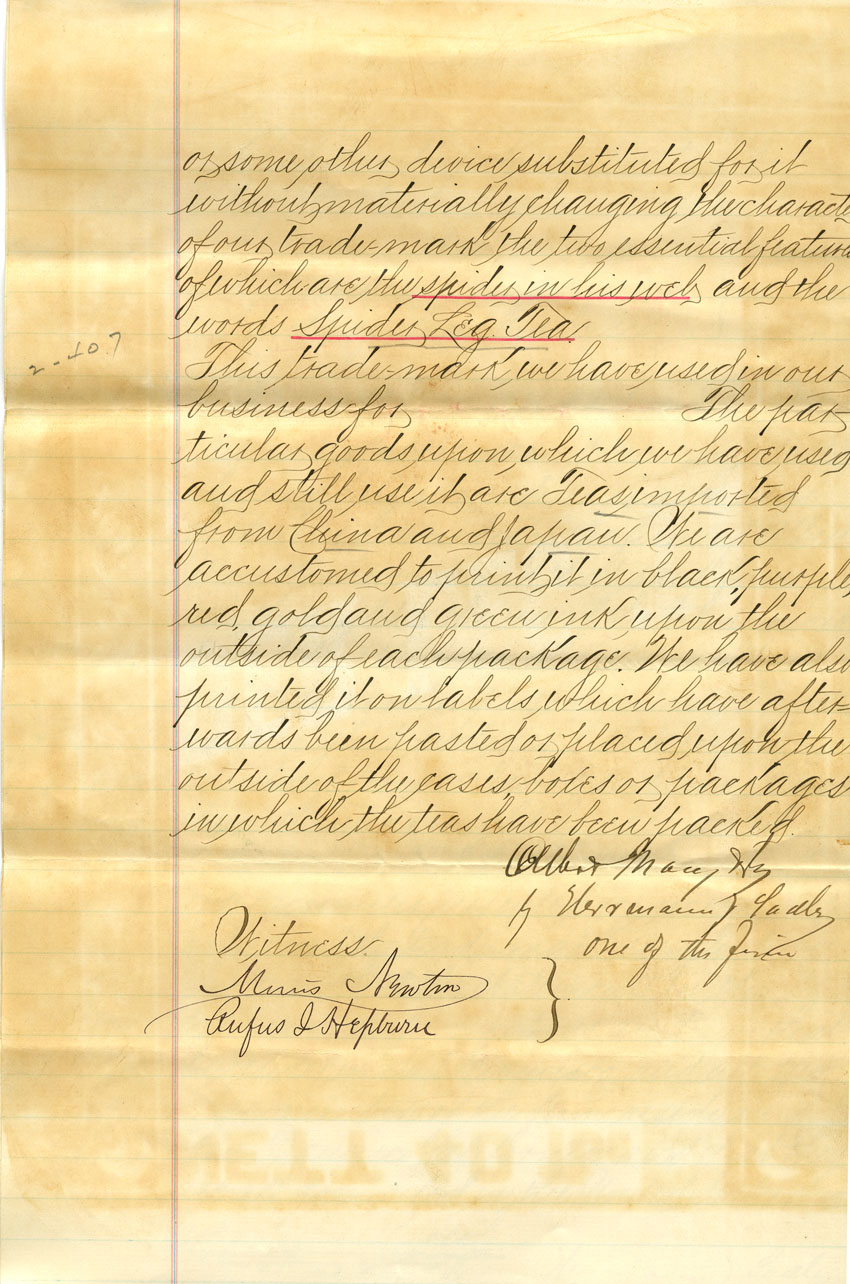 or some other device substituted for it
without materially changing the characte
of our trade-mark the two essential feature
of which are the spider in his web and the
words Spider Leg Tea.
2-407
This trade-mark we have used in our
business for The par-
ticular goods upon which we have used
and still use it are Teas imported
from China and Japan. We are
accustomed to print it in black, purple,
red, gold and green ink upon the
outside of each package. We have also
printed it on labels which have after=
wards been pasted or placed upon the
outside of the cases, boxes or packages
in which the teas have been packed.
Albert Macy
by Herrmann
one of the firm
Witness.
Newton
Rufus I Hepburn